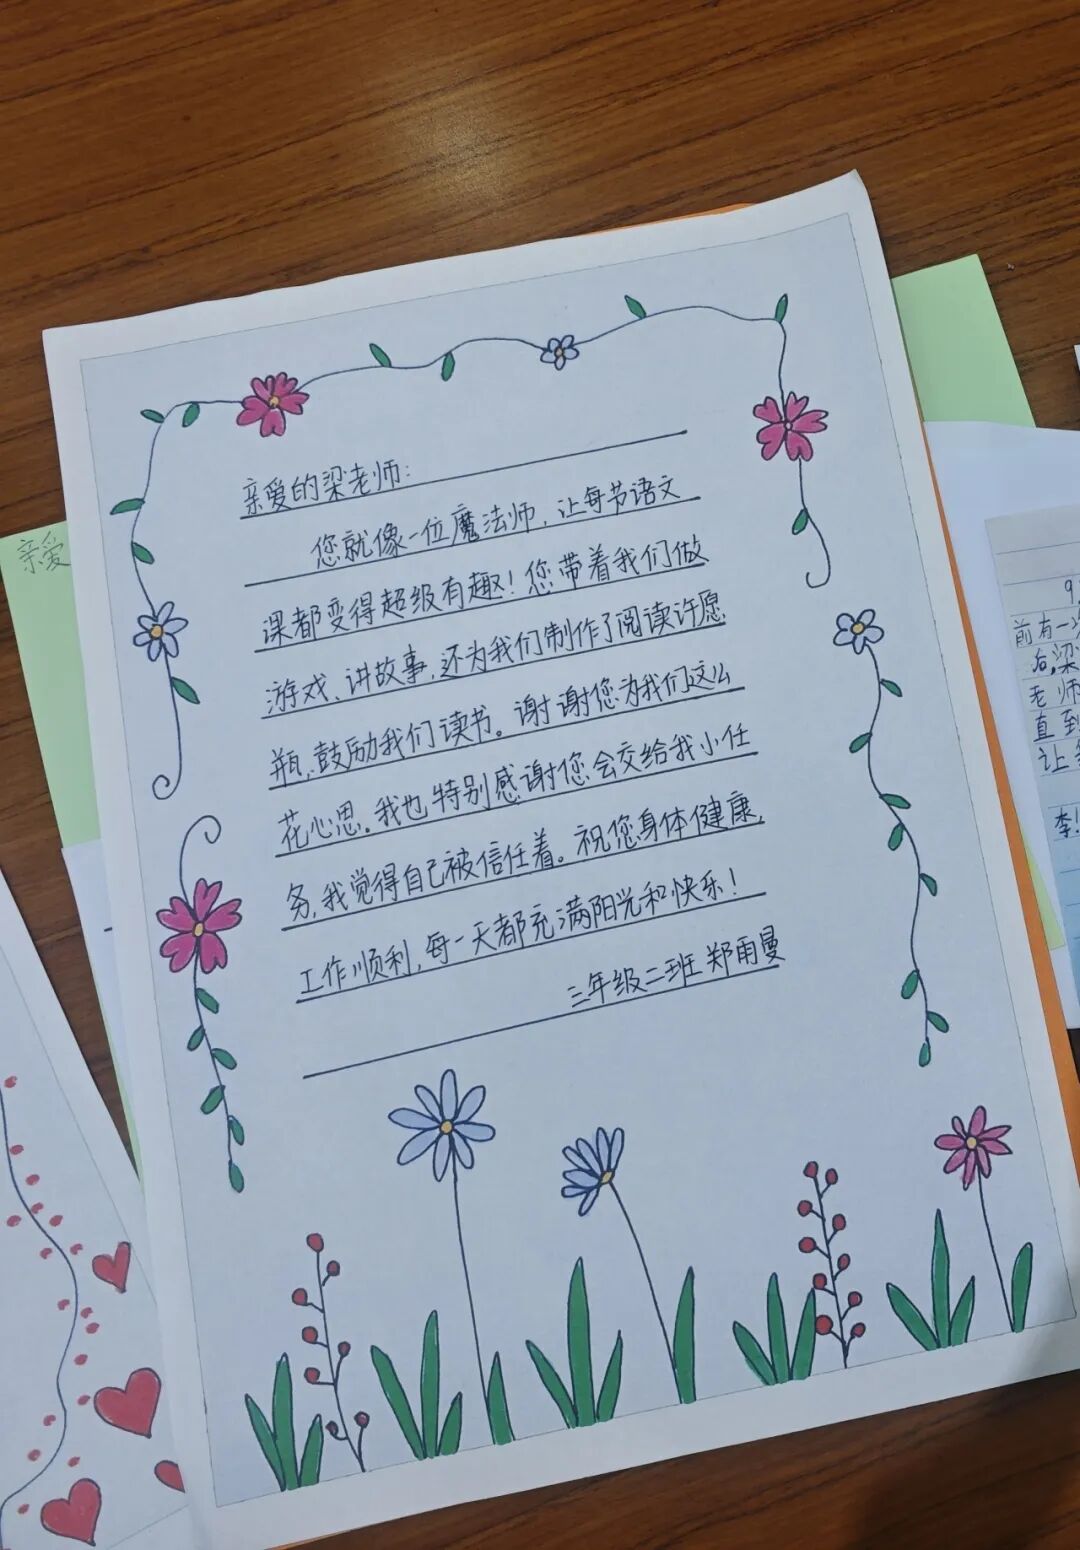 亲爱的梁老师:
您就像一位魔法师,让每节语文
课都变得超级有趣!您带着我们做
游戏、讲故事,还为我们制作了阅读许愿
瓶,鼓励我们读书。谢谢您为我们这么
花心思。我也特别感谢您会交给我小任
务,我觉得自己被信任着。祝您身体健康,
工作顺利,每一天都充满阳光和快乐!
三年级二班 郑雨曼
亲爱
9
前有一
后,梁
老师
直到
让
李